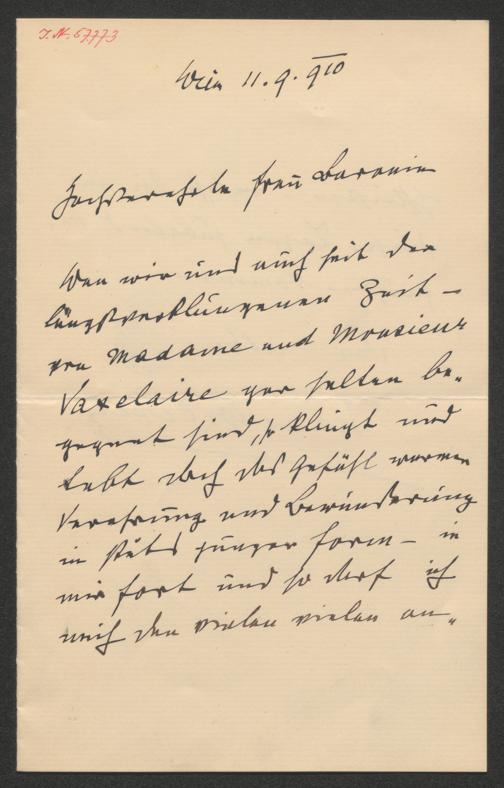 I.N. 67773
Wien 11. 9. 910
Hochverehrte Frau Baronin
Wen wir uns auch seit der
längstverklungenen Zeit –
von Madame und Monsieur
Vaxelaire gar selten be„
gegnet sind, so klingt und
lebt doch das Gefühl warmer
Verehrung und Bewunderung
in stets junger Form – in
mir fort und so darf ich
mich den vielen vielen an„